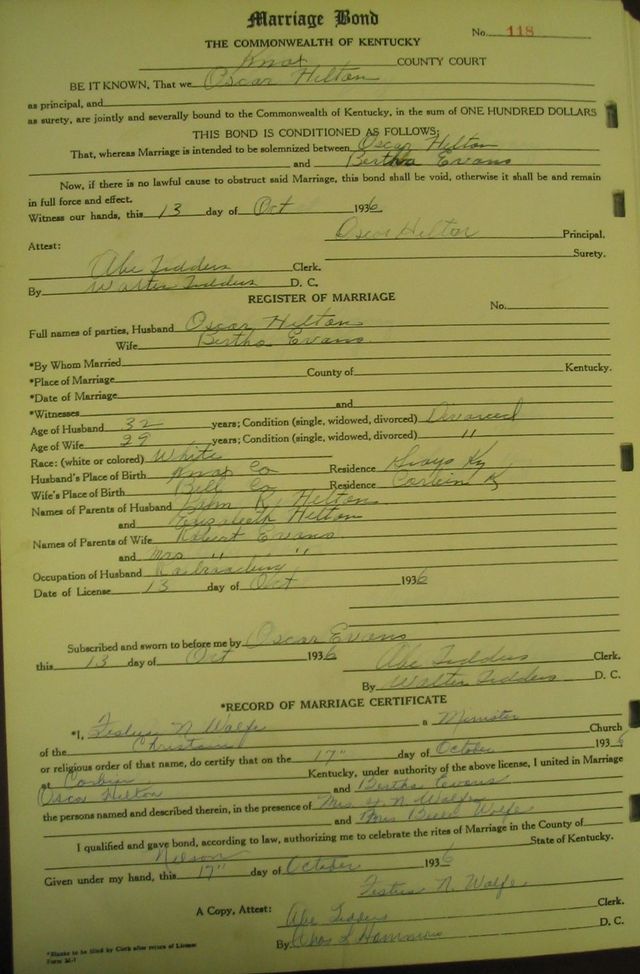 Marriage Bond
No. 118
THE COMMONWEALTH OF KENTUCKY
Knox COUNTY COURT
BE IT KNOWN, That we Oscar Hilton
as principal, and
as surety, are jointly and severally bound to the Commonwealth of Kentucky, in the sum of ONE HUNDRED DOLLARS
THIS BOND IS CONDITIONED AS FOLLOWS:
That, whereas Marriage is intended to be solemnized between Oscar Hilton
and Bertha Evans
Now, if there is no lawful cause to obstruct said Marriage, this bond shall be void, otherwise it shall be and remain
in full force and effect.
Witness our hands, this 13 day of Oct 1936
Oscar Hilton Principal.
Attest: Surety.
Abe Fidders Clerk.
By Walter Fidders D. C.
REGISTER OF MARRIAGE
No.
Full names of parties, Husband Oscar Hilton
Wife Bertha Evans
*By Whom Married
*Place of Marriage County of Kentucky.
*Date of Marriage
*Witnesses and
Age of Husband 32 years; Condition (single, widowed, divorced) Divorced
Age of Wife 29 years; Condition (single, widowed, divorced) "
Race: (white or colored) White
Husband's Place of Birth Knox Co Residence Grays Ky
Wife's Place of Birth Bell Co Residence Corbin K
Names of Parents of Husband John R. Hilton
and Elizabeth Hilton
Names of Parents of Wife Robert Evans
and Mrs " "
Occupation of Husband Railroading
Date of License 13 day of Oct 1936
Subscribed and sworn to before me by Oscar Evans
this 13 day of Oct 1936 Abe Fidders Clerk.
By Walter Fidders D. C.
*RECORD OF MARRIAGE CERTIFICATE
*I, Festus N. Wolfe a Minister
of the Christian Church
or religious order of that name, do certify that on the 17" day of October 1936
at Corbin Kentucky, under authority of the above license, I united in Marriage
Oscar Hilton and Bertha Evans
the persons named and described therein, in the presence of Mrs. F. N. Wolfe
and Mrs Wolfe
I qualified and gave bond, according to law, authorizing me to celebrate the rites of Marriage in the County of
Nelson State of Kentucky.
Given under my hand, this 17" day of October 1936
Festus N. Wolfe
A Copy, Attest: Abe Fidders Clerk.
By Chas L Hammons D. C.
*Blanks to be filled by Clerk after return of License
Form M-1